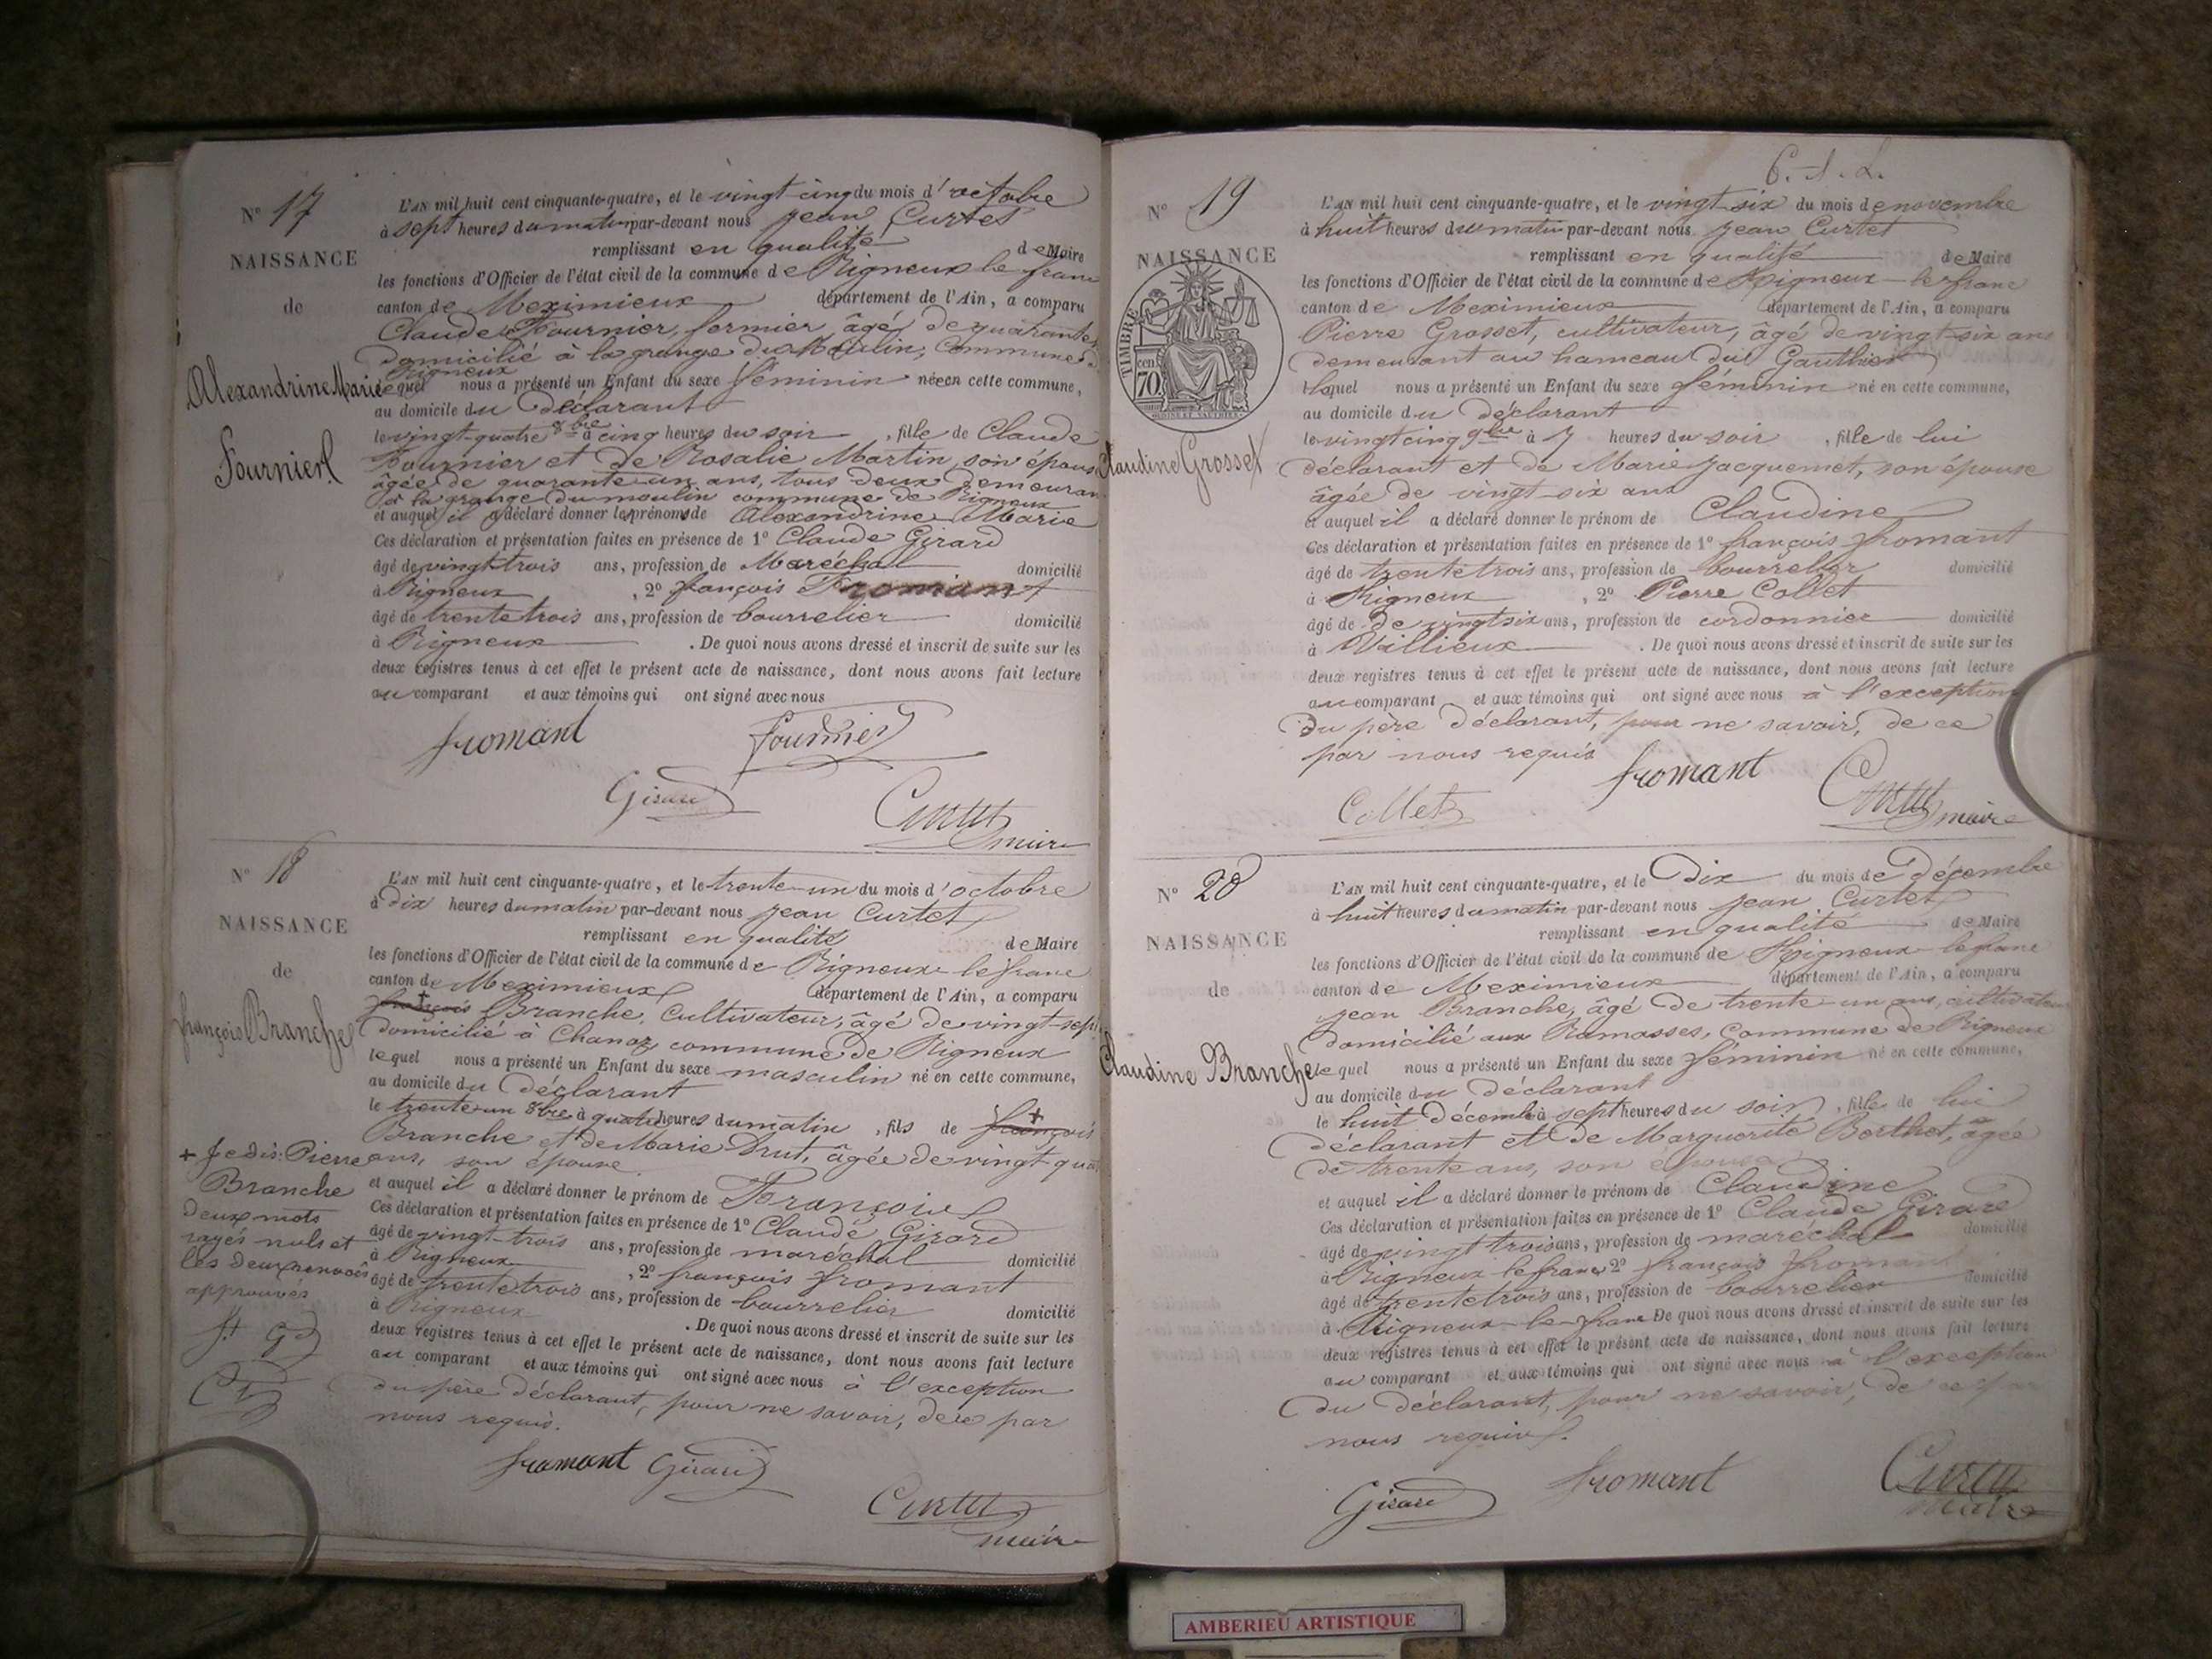 N° 17
NAISSANCE
de
Alexandrine Marie
Fournier
L'AN mil huit cent cinquante-quatre, et le vingt-cinq du mois d'octobre
à sept heures du matin par-devant nous Jean Curtet
remplissant en qualité de Maire
les fonctions d'Officier de l'état civil de la commune de Rigneux le franc
canton de Meximieux département de l'Ain, a comparu
Claude Fournier, fermier, âgé de quarante
domicilié à la grange du Moulin, Commune de
Rigneux
lequel nous a présenté un Enfant du sexe féminin née en cette commune,
au domicile du Déclarant
le vingt-quatre 8bre à cinq heures du soir, fille de Claude
Fournier et de Rosalie Martin son épouse
âgée de quarante un ans, tous deux demeurant
à la grange du moulin commune de Rigneux
et auquel il a déclaré donner les prénoms de Alexandrine Marie
Ces déclaration et présentation faites en présence de 1° Claude Girard
âgé de vingt-trois ans, profession de Maréchal domicilié
à Rigneux, 2° françois Fromant
âgé de trente trois ans, profession de bourrelier domicilié
à Rigneux. De quoi nous avons dressé et inscrit de suite sur les
deux registres tenus à cet effet le présent acte de naissance, dont nous avons fait lecture
au comparant et aux témoins qui ont signé avec nous
fromant Fournier
Girard
Curtet
maire
N° 18
NAISSANCE
de
françois Branche
L'AN mil huit cent cinquante-quatre, et le trente-un du mois d'octobre
à dix heures du matin par-devant nous Jean Curtet
remplissant en qualité de Maire
les fonctions d'Officier de l'état civil de la commune de Rigneux le franc
canton de Meximieux département de l'Ain, a comparu
+ françois Branche, Cultivateur, âgé de vingt-sept
domicilié à Chanoz commune de Rigneux
lequel nous a présenté un Enfant du sexe masculin né en cette commune,
au domicile du Déclarant
le trente-un 8bre à quatre heures du matin, fils de françois +
Branche et de Marie Brut, âgée de vingt quatre
ans, son épouse
et auquel il a déclaré donner le prénom de François
Ces déclaration et présentation faites en présence de 1° Claude Girard
âgé de vingt-trois ans, profession de maréchal domicilié
à Rigneux, 2° françois fromant
âgé de trente trois ans, profession de bourrelier domicilié
à Rigneux. De quoi nous avons dressé et inscrit de suite sur les
deux registres tenus à cet effet le présent acte de naissance, dont nous avons fait lecture
au comparant et aux témoins qui ont signé avec nous à l'exception
du père déclarant, pour ne savoir, de ce par
nous requis.
+ Je dis: Pierre
Branche
deux mots
rayés nuls et
les deux renvois
approuvés
ft Gd
Ct
fromant Girard
Curtet
maire
C. A. L.
N° 19
NAISSANCE
TIMBRE
70 cen.
Claudine Grosset
L'AN mil huit cent cinquante-quatre, et le vingt-six du mois de novembre
à huit heures du matin par-devant nous Jean Curtet
remplissant en qualité de Maire
les fonctions d'Officier de l'état civil de la commune de Rigneux-le franc
canton de Meximieux département de l'Ain, a comparu
Pierre Grosset, cultivateur, âgé de vingt-six ans
demeurant au hameau du Gauthier
lequel nous a présenté un Enfant du sexe féminin né en cette commune,
au domicile du déclarant
le vingt cinq 9bre à 7 heures du soir, fille de lui
déclarant et de Marie Jacquemet, son épouse
âgée de vingt-six ans
et auquel il a déclaré donner le prénom de Claudine
Ces déclaration et présentation faites en présence de 1° françois fromant
âgé de trente trois ans, profession de bourrelier domicilié
à Rigneux, 2° Pierre Collet
âgé de de vingt six ans, profession de cordonnier domicilié
à Villieux. De quoi nous avons dressé et inscrit de suite sur les
deux registres tenus à cet effet le présent acte de naissance, dont nous avons fait lecture
au comparant et aux témoins qui ont signé avec nous à l'exception
du père déclarant, pour ne savoir, de ce
par nous requis
fromant
Collet
Curtet
maire
N° 20
NAISSANCE
de
Claudine Branche
L'AN mil huit cent cinquante-quatre, et le Dix du mois de Décembre
à huit heures du matin par-devant nous Jean Curtet
remplissant en qualité de Maire
les fonctions d'Officier de l'état civil de la commune de Rigneux-le franc
canton de Meximieux département de l'Ain, a comparu
Jean Branche, âgé de trente-un ans, cultivateur
domicilié aux Ramasses, Commune de Rigneux
lequel nous a présenté un Enfant du sexe féminin né en cette commune,
au domicile du Déclarant
le huit Décembre à sept heures du soir, fille de lui
déclarant et de Marguerite Berthet, âgée
de trente ans, son épouse
et auquel il a déclaré donner le prénom de Claudine
Ces déclaration et présentation faites en présence de 1° Claude Girard
âgé de vingt trois ans, profession de maréchal domicilié
à Rigneux le franc, 2° françois fromant
âgé de trente trois ans, profession de bourrelier domicilié
à Rigneux-le-franc De quoi nous avons dressé et inscrit de suite sur les
deux registres tenus à cet effet le présent acte de naissance, dont nous avons fait lecture
au comparant et aux témoins qui ont signé avec nous à l'exception
du déclarant, pour ne savoir, de ce par
nous requis.
Girard fromant Curtet
maire
AMBERIEU ARTISTIQUE